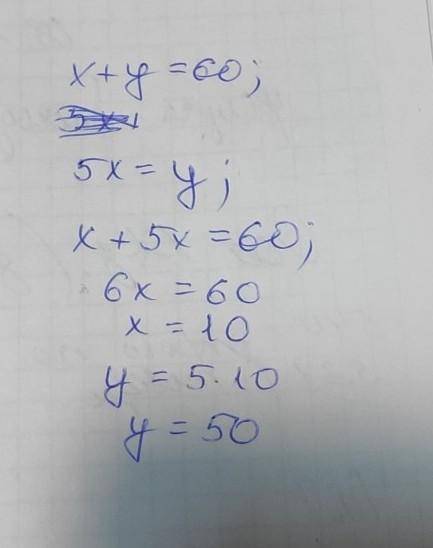 x+y=60;
5x=y;
x+5x=60;
6x=60
x=10
y=5·10
y=50